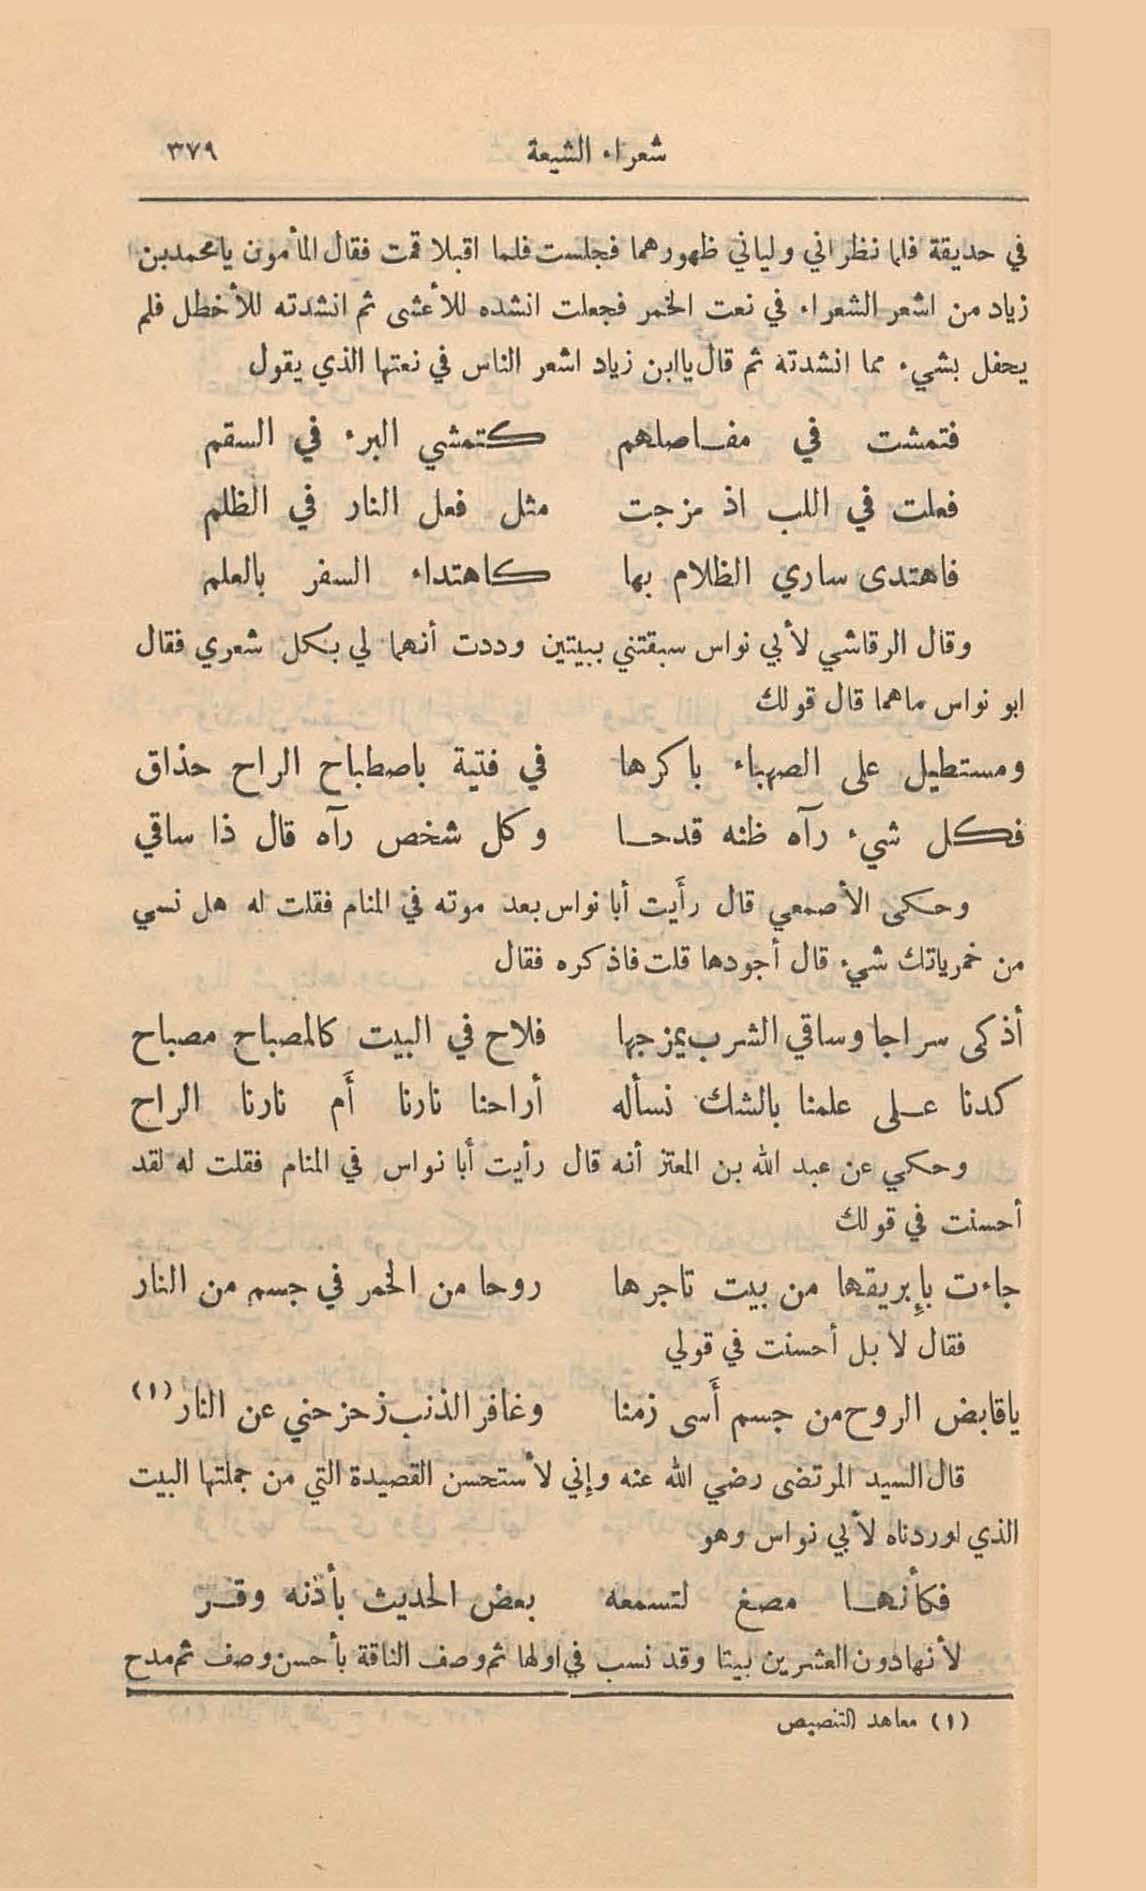 شعراء الشيعة ٣٧٩
في حديقة فلما نظراني ولياني ظهورهما فجلست فلما اقبلا قمت فقال المأمون يامحمدبن
زياد من اشعر الشعراء في نعت الخمر فجعلت انشده للأعشى ثم انشدته للأخطل فلم
يحفل بشيء مما انشدته ثم قال ياابن زياد اشعر الناس في نعتها الذي يقول
فتمشت في مفاصلهم كتمشي البرء في السقم
فعلت في اللب اذ مزجت مثل فعل النار في الظلم
فاهتدى ساري الظلام بها كاهتداء السفر بالعلم
وقال الرقاشي لأبي نواس سبقتني ببيتين وددت أنهما لي بكل شعري فقال
ابو نواس ماهما قال قولك
ومستطيل على الصهباء باكرها في فتية باصطباح الراح حذاق
فكل شيء رآه ظنه قدحا وكل شخص رآه قال ذا ساقي
وحكى الأصمعي قال رأيت أبا نواس بعد موته في المنام فقلت له هل نسي
من خمرياتك شيء قال أجودها قلت فاذكره فقال
أذكى سراجا وساقي الشرب يمزجها فلاح في البيت كالمصباح مصباح
كدنا على علمنا بالشك نسأله أراحنا نارنا أم نارنا الراح
وحكي عن عبد الله بن المعتز أنه قال رأيت أبا نواس في المنام فقلت له لقد
أحسنت في قولك
جاءت بإبريقها من بيت تاجرها روحا من الخمر في جسم من النار
فقال لا بل أحسنت في قولي
ياقابض الروح من جسم أسى زمنا وغافر الذنب زحزحني عن النار (١)
قال السيد المرتضى رضي الله عنه وإني لأستحسن القصيدة التي من جملتها البيت
الذي اوردناه لأبي نواس وهو
فكأنها مصغ لتسمعه بعض الحديث بأذنه وقر
لأنهادون العشرين بيتا وقد نسب في اولها ثم وصف الناقة بأحسن وصف ثم مدح
(١) معاهد التنصيص